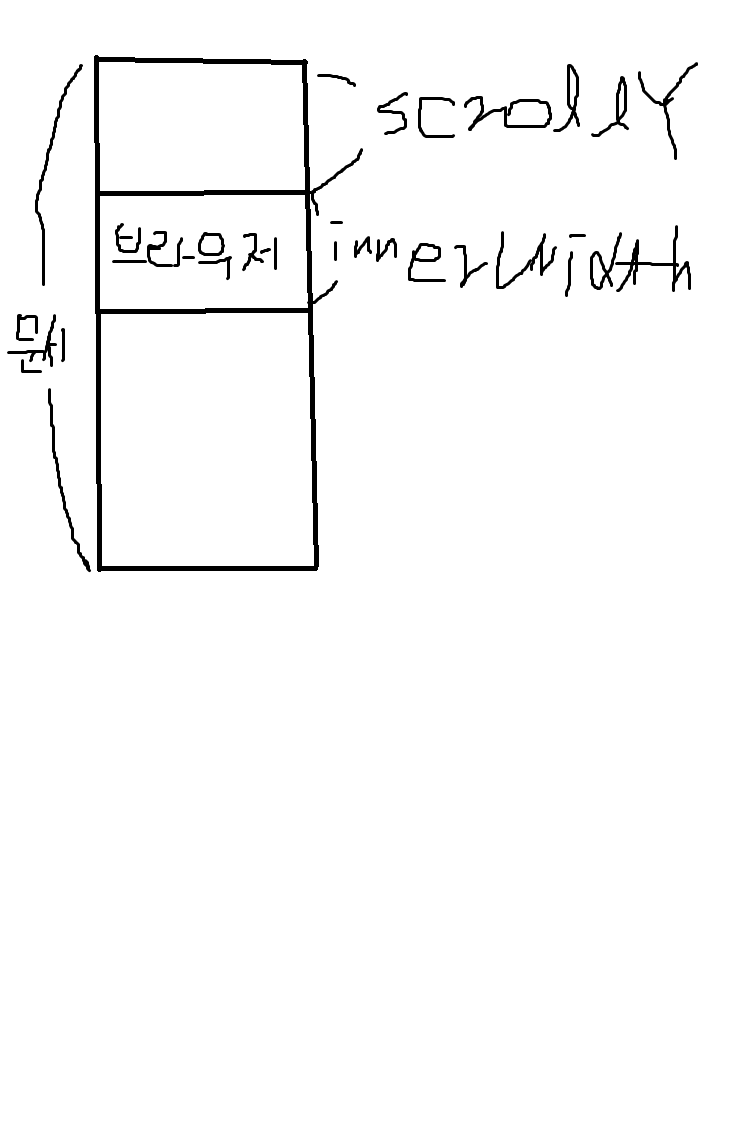 scrollY
브라우저
innerWidth
문서